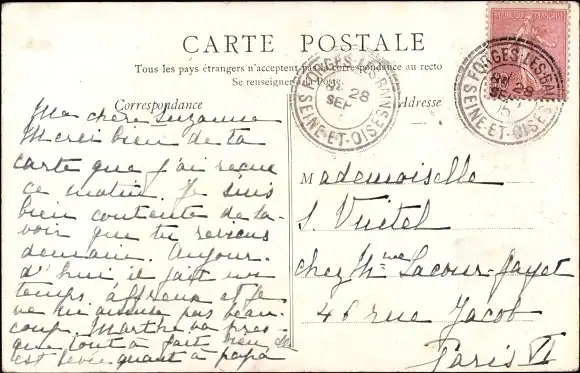 CARTE POSTALE
Tous les pays étrangers n'acceptent pas la correspondance au recto
Se renseigner à la Poste.
Correspondance
Ma chère Suzanne
Merci bien de ta
carte que j'ai reçue
ce matin. Je suis
bien contente de sa-
voir que tu reviens
demain. Aujour-
d'hui il fait un
temps affreux et je
ne m'amuse pas beau-
coup. Marthe va pres-
que tout à fait bien elle
est levée quant à papa
Adresse
Mademoiselle
S. Vuitel
chez Mme Lacour-Gayet
46 rue Jacob
Paris VI
REPUBLIQUE FRANÇAISE
FORGES-LES-BAINS
28
SEPT
SEINE-ET-OISE
FORGES-LES-BAINS
28
SEPT
SEINE-ET-OISE